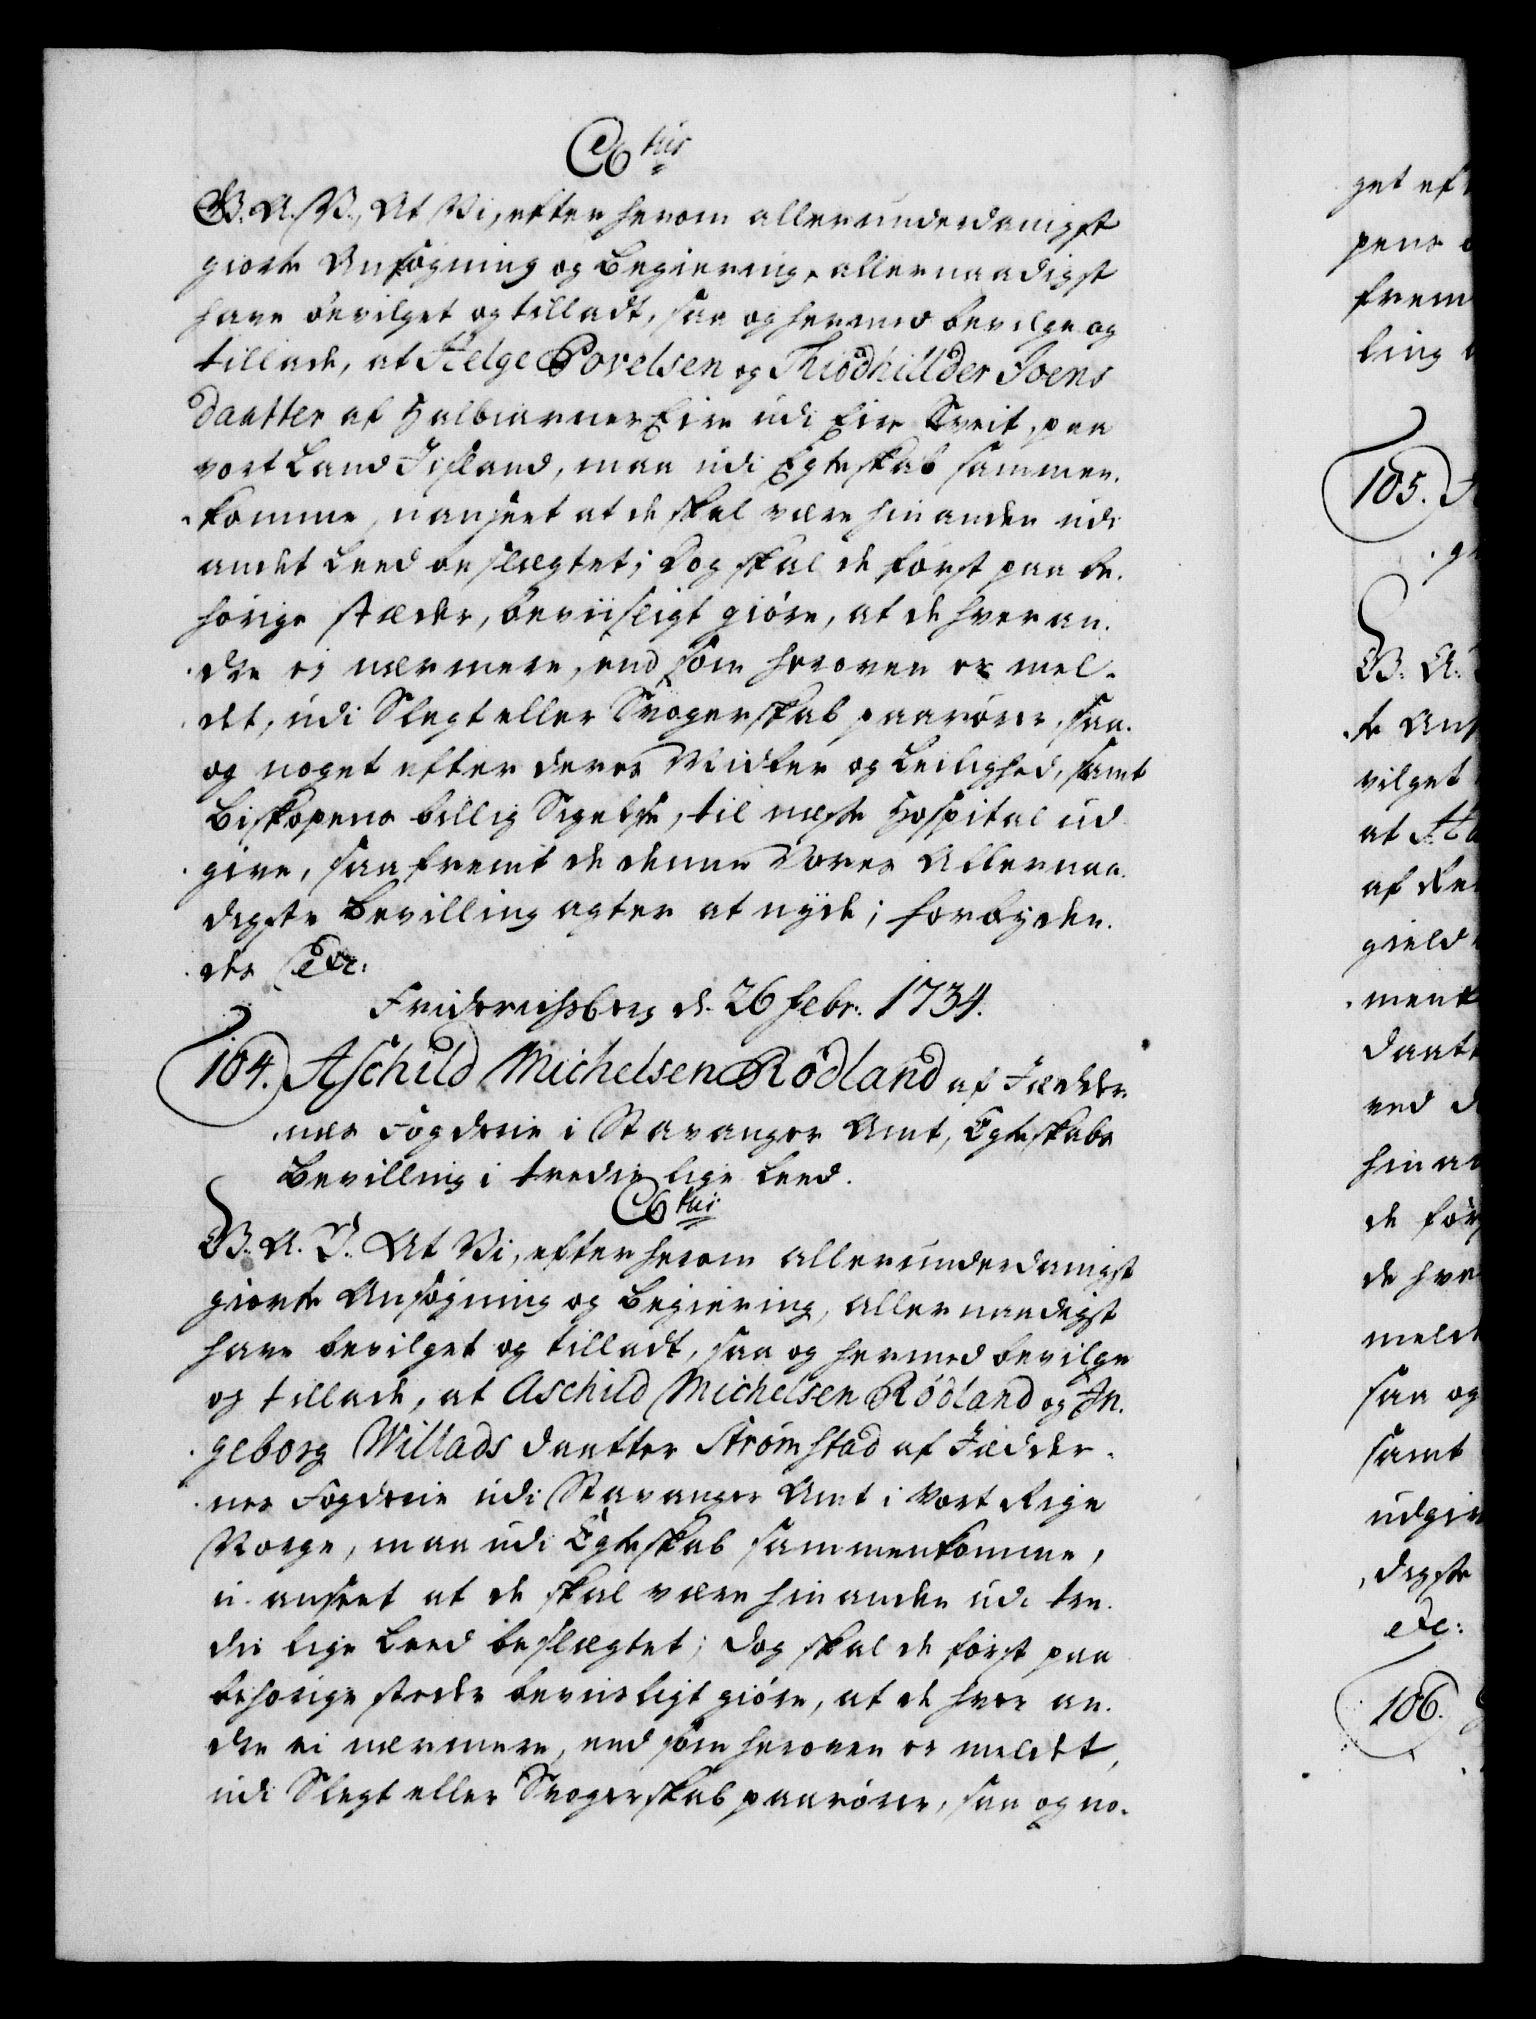 C6tus
G. A. V., At Vi, efter herom allerunderdanigst
giorte Ansøgning og Begiering, allernaadigst
have bevilget og tilladt, saa og hermed bevilge og
tillade, at Helge Povelsen og Thiodhillder Joens
daatter af Halbiarner Eire udi Eire Sveit, paa
vort Land Jisland, maa udi Egteskab sammen-
komme, uanseet at de skal være hinanden udi
andet Leed beslægtet; Dog skal de først paa be-
hørige stæder, beviisligt giøre, at de hveran-
dre ej nærmere, end som heroven er mel-
det, udi Slegt eller Svogerskab paarører, saa
og noget efter deres Midler og Leilighed, samt
Biskopens billig Sigelse, til næste Hospital ud
give, saafremt de denne Vores Allernaa-
digste Bevilling agter at nyde; forbyden-
des etc:
Friderichsberg d. 26 Febr. 1734.
104. Aschild Michelsen Rødland af Jædder-
nes Fogderie i Stavanger Amt, Egteskabs
Bevilling i tredie lige Leed.
C6tus
G. A. V. At Vi, efter herom allerunderdanigst
giorte Ansøgning og Begiering, allernaadigst
have bevilget og tilladt, saa og hermed bevilge
og tillade, at Aschild Michelsen Rødland og In-
geborg Willads daatter Strømstad af Jædder-
nes Fogderie udi Stavanger Amt i vort Rige
Norge, maa udi Egteskab sammenkomme,
uanseet at de skal være hinanden udi tre-
die lige Leed beslægtet; Dog skal de først paa
behørige stæder beviisligt giøre, at de hver an-
dre ei nærmere, end som heroven er meldet,
udi Slegt eller Svogerskab paarører, saa og no-
get eft
pens
frem
ling
105.
G. A.
te Ans
vilget
at
af
gield
ment
daatt
ved d
hinan
de før
de hve
meld
saa og
samt
udgiv
digste
etc:
106.